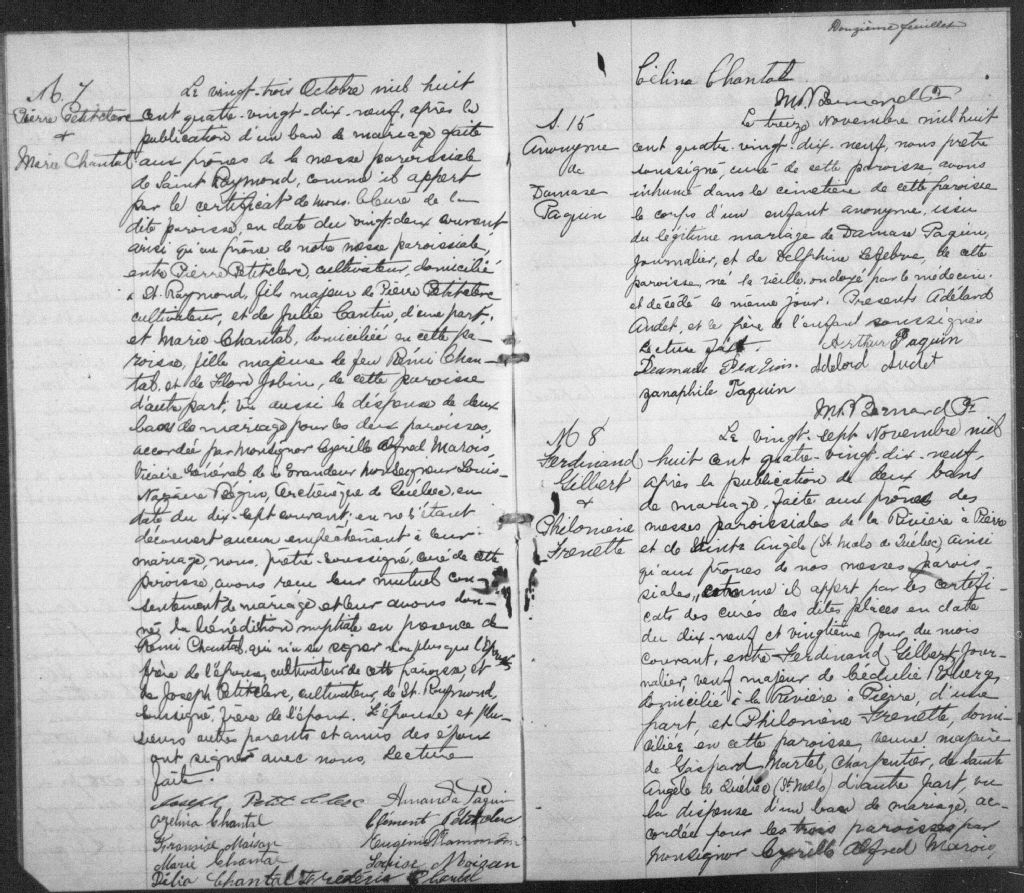 M. 7
Pierre Petitclerc
&
Marie Chantal
Le vingt-trois Octobre mil huit
cent quatre-vingt-dix-neuf, après la
publication d'un ban de mariage faite
aux prônes de la messe paroissiale
de Saint Raymond, comme il appert
par le certificat de mons. le Curé de la
dite paroisse, en date du vingt-deux courant
ainsi qu'au prône de notre messe paroissiale,
entre Pierre Petitclerc, cultivateur, domicilié
à St. Raymond, fils majeur de Pierre Petitclerc
cultivateur, et de Julie Cantin, d'une part,
et Marie Chantal, domiciliée en cette pa-
roisse, fille majeure de feu Rémi Chan-
tal, et de Flore Jobin, de cette paroisse
d'autre part, vu aussi la dispense de deux
bans de mariage pour les deux paroisses,
accordée par Monsignor Cyrille Alfred Marois,
Vicaire Général de sa Grandeur Monseigneur Louis-
Nazaire Bégin, Archevêque de Québec, en
date du dix-sept courant; en ne s'étant
découvert aucun empêchement à leur
mariage, nous, prêtre soussigné, curé de cette
paroisse, avons reçu leur mutuel con-
sentement de mariage et leur avons don-
né la bénédiction nuptiale en présence de
Rémi Chantal, qui n'a su signer non plus que l'époux
frère de l'épouse, cultivateur de cette paroisse, et
de Joseph Petitclerc, cultivateur, de St. Raymond,
soussigné, frère de l'époux. L'épouse et plu-
sieurs autres parents et amis des époux
ont signé avec nous. Lecture
faite.
Joseph Petit Clerc Amanda Paquin
Ozelina Chantal Clement Petitclerc
Moisan Eugénie
Marie Chantal Louise Moisan
Délia Chantal Frédéric
Douzième feuillet
Célina Chantal
Ms. V. Bernard Ptre
S. 15
Anonyme
de
Damase
Paquin
Le treize Novembre mil huit
cent quatre-vingt-dix-neuf, nous prêtre
soussigné, curé de cette paroisse, avons
inhumé dans le cimetière de cette paroisse
le corps d'un enfant anonyme, issu
du légitime mariage de Damase Paquin,
journalier, et de Delphine Lefebvre, de cette
paroisse, né la veille, ondoyé par le médecin
et décédé le même jour. Présents Adélard
Audet, et le père de l'enfant soussignés
Lecture faite. Arthur Paquin
Adelord Audet
zanaphile Paquin
Ms. V. Bernard Ptre
M 8
Ferdinand
Gilbert
&
Philomène
Frenette
Le vingt-sept Novembre mil
huit cent quatre-vingt-dix-neuf,
après la publication de deux bans
de mariage, faite aux prones des
messes paroissiales de la Rivière à Pierre
et de Sainte Angèle (St. Malo de Québec) ainsi
qu'aux prônes de nos messes parois-
siales, comme il appert par les certifi-
cats des curés des dites places en date
du dix-neuf et vingtième jour du mois
courant, entre Ferdinand Gilbert, jour-
nalier, veuf majeur de Cédulie
domicilié à la Rivière à Pierre, d'une
part, et Philomène Frenette, domi-
ciliée en cette paroisse, veuve majeure
de Gaspard Martel, charpentier, de sainte
Angèle de Québec (St. Malo) d'autre part, vu
la dispense d'un ban de mariage, ac-
cordée pour les trois paroisses par
Monsignor Cyrille Alfred Marois,